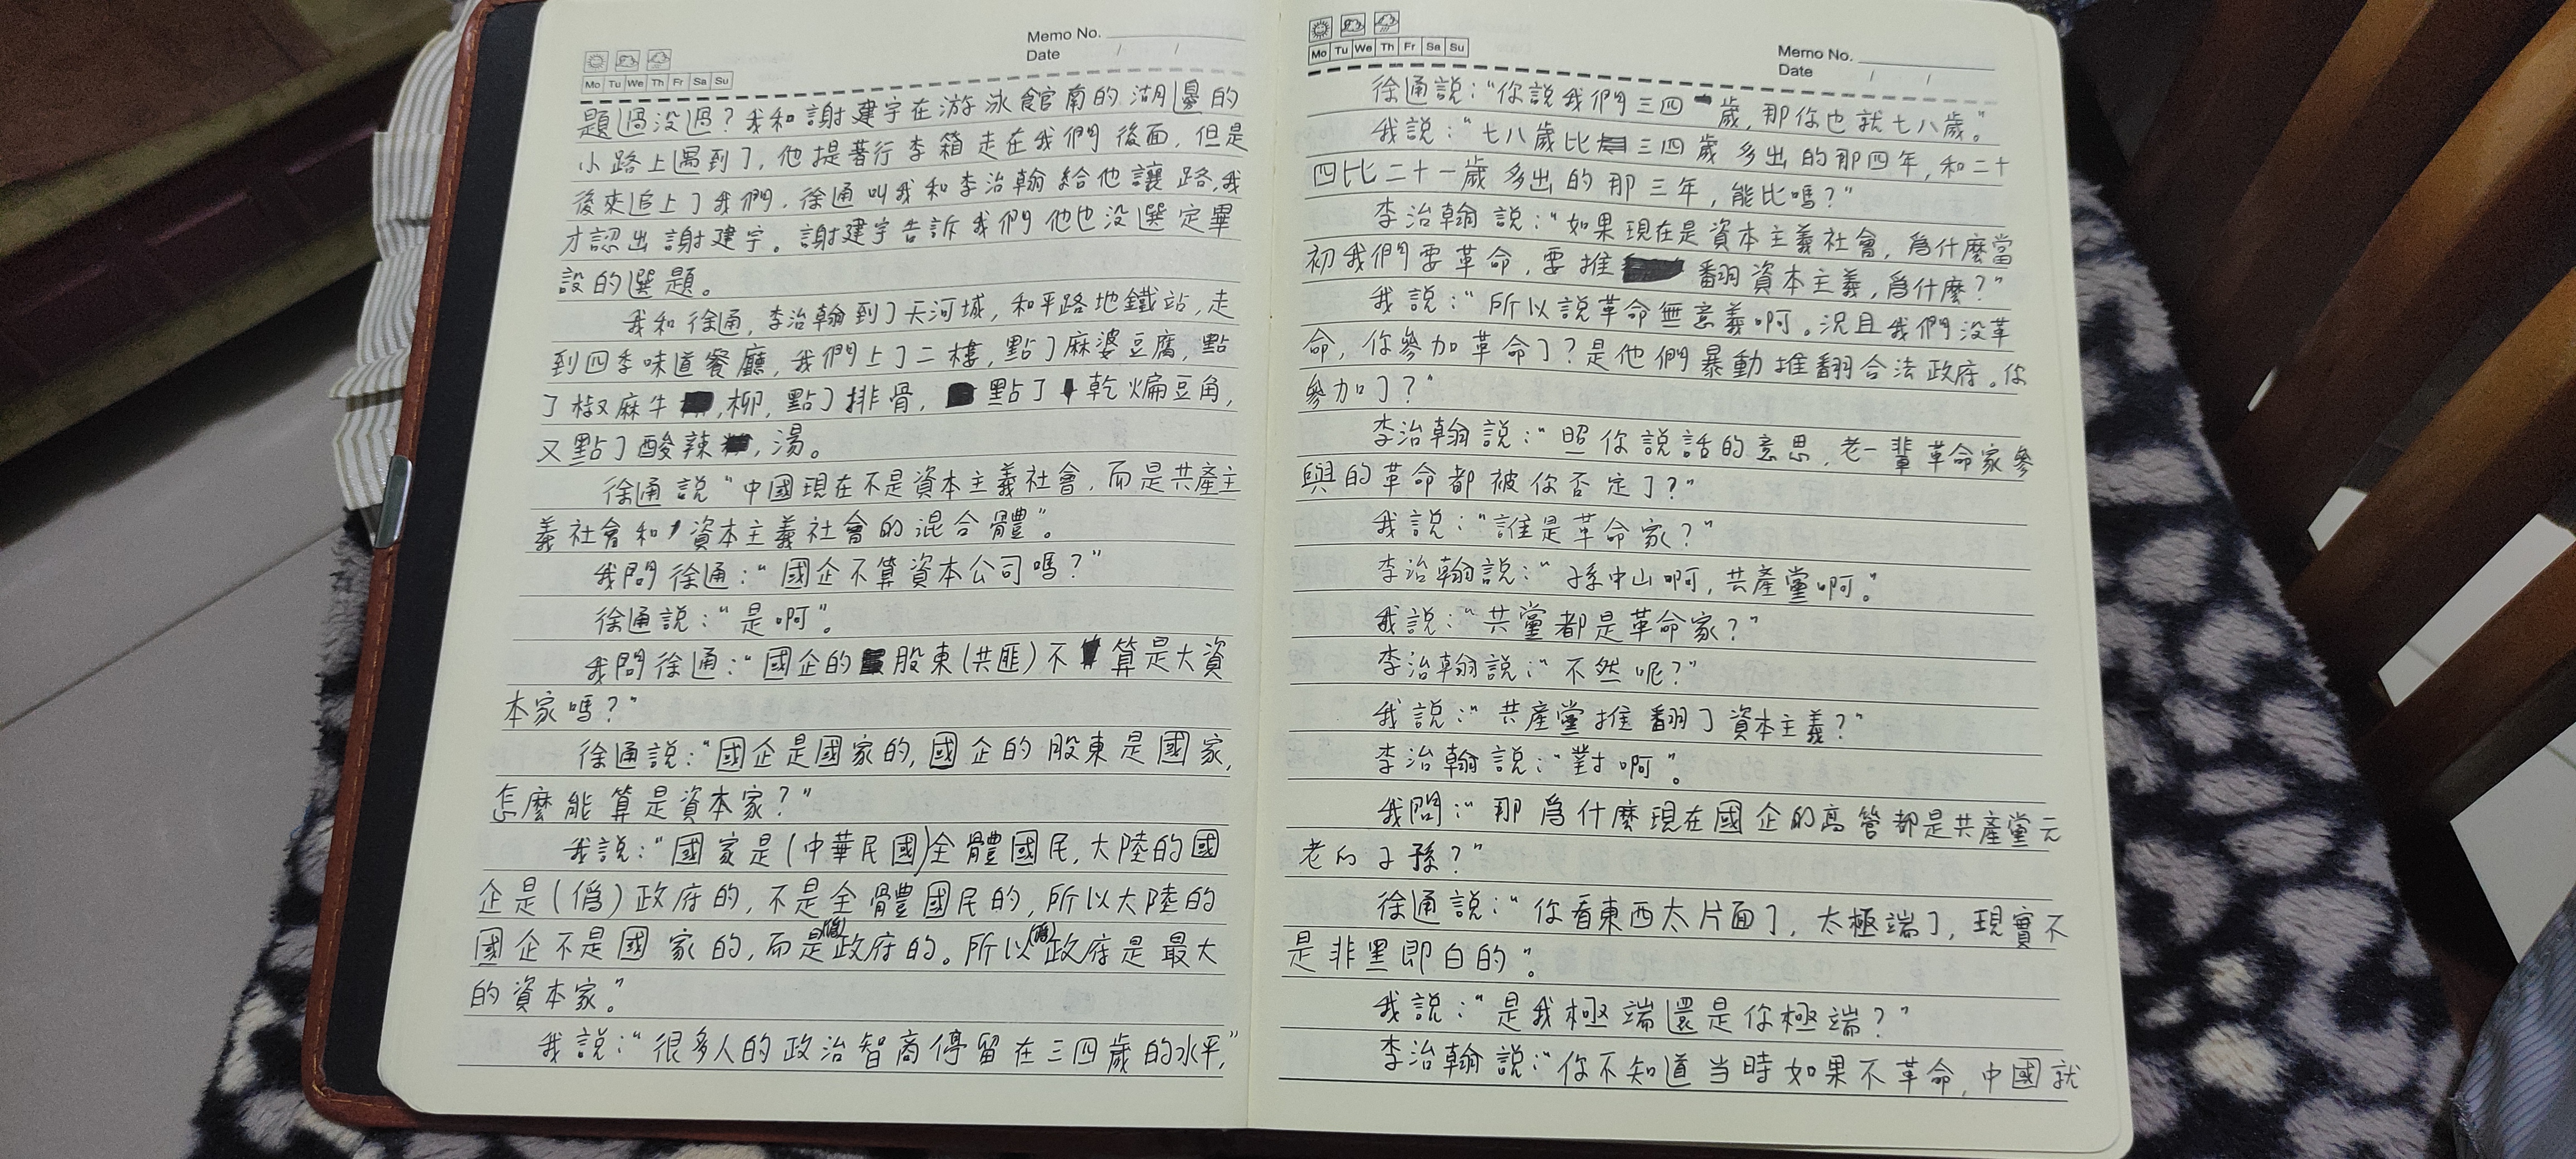 Memo No.
Date / /
Mo Tu We Th Fr Sa Su
題過没過？我和謝建宇在游泳館南的湖邊的
小路上遇到了，他提著行李箱走在我們後面，但是
後來追上了我們．徐通叫我和李治翰給他讓路，我
才認出謝建宇。謝建宇告訴我們他也没選定畢
設的選題。
我和徐通，李治翰到了天河城，和平路地鐵站，走
到四季味道餐廳，我們上了二樓，點了麻婆豆腐，點
了椒麻牛，柳，點了排骨，點了乾煸豆角，
又點了酸辣，湯。
徐通説“中國現在不是資本主義社會，而是共產主
義社會和資本主義社會的混合體”。
我問徐通：“國企不算資本公司嗎？”
徐通説：“是啊”。
我問徐通：“國企的股東（共匪）不算是大資
本家嗎？”
徐通説：“國企是國家的，國企的股東是國家，
怎麼能算是資本家？”
我説：“國家是（中華民國）全體國民，大陸的國
企是（僞）政府的，不是全體國民的，所以大陸的
國企不是國家的，而是（僞）政府的。所以（僞）政府是最大
的資本家。”
我説：“很多人的政治智商停留在三四歲的水平，”
Memo No.
Date / /
Mo Tu We Th Fr Sa Su
徐通説：“你説我們三四歲，那你也就七八歲。”
我説：“七八歲比三四歲多出的那四年，和二十
四比二十一歲多出的那三年，能比嗎？”
李治翰説：“如果現在是資本主義社會，爲什麼當
初我們要革命，要推翻資本主義，爲什麼？”
我説：“所以説革命無意義啊。況且我們没革
命，你參加革命了？是他們暴動推翻合法政府。你
參加了？”
李治翰説：“照你説話的意思，老一輩革命家參
與的革命都被你否定了？”
我説：“誰是革命家？”
李治翰説：“孫中山啊，共產黨啊”。
我説：“共黨都是革命家？”
李治翰説：“不然呢？”
我説：“共產黨推翻了資本主義？”
李治翰説：“對啊”。
我問：“那爲什麼現在國企的高管都是共產黨元
老的子孫？”
徐通説：“你看東西太片面了，太極端了，現實不
是非黑即白的”。
我説：“是我極端還是你極端？”
李治翰説：“你不知道当時如果不革命，中國就